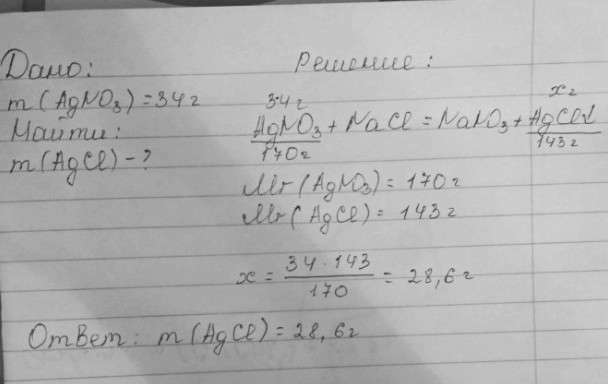 Дано:
Решение:
m(AgNO₃)=34г
Найти:
m(AgCl)-?
34г
xг
AgNO₃+NaCl=NaNO₃+AgCl↓
170г
143г
Mr(AgNO₃)=170г
Mr(AgCl)=143г
x = 34·143 / 170 = 28,6г
Ответ: m(AgCl)=28,6г